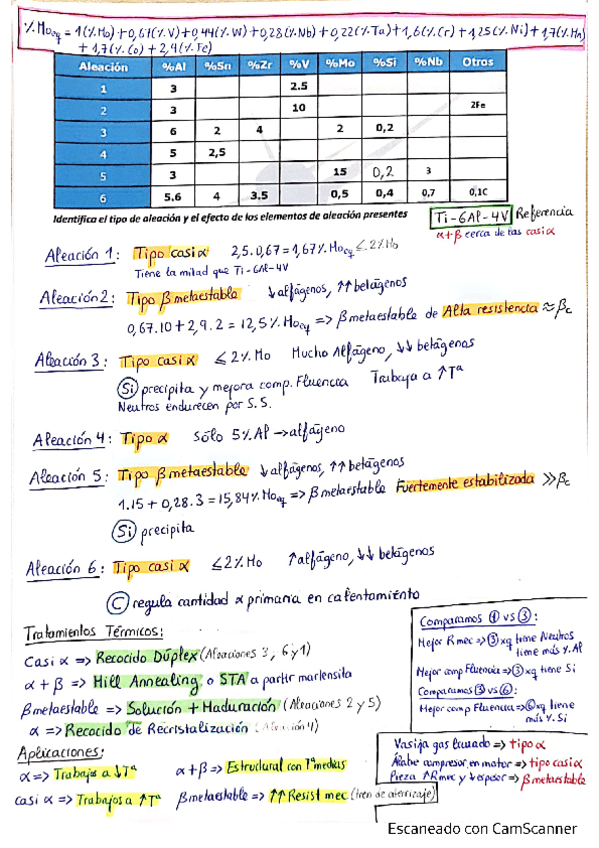 %Mo eq = 1(%Mo) + 0,67(%V) + 0,44(%W) + 0,28(%Nb) + 0,22(%Ta) + 1,6(%Cr) + 1,25(%Ni) + 1,7(%Mn)
+ 1,7(%Co) + 2,9(%Fe)
Aleación %Al %Sn %Zr %V %Mo %Si %Nb Otros
1 3 2.5
2 3 10 2Fe
3 6 2 4 2 0,2
4 5 2,5
5 3 15 0,2 3
6 5,6 4 3.5 0,5 0,4 0,7 0,1C
Identifica el tipo de aleación y el efecto de los elementos de aleación presentes
Ti-6Al-4V Referencia
α+β cerca de las casi α
Aleación 1: Tipo casi α 2,5·0,67 = 1,67% Mo eq ≤ 2% Mo
Tiene la mitad que Ti-6Al-4V
Aleación 2: Tipo β metaestable ↓ alfágenos, ↑↑ betágenos
0,67·10 + 2,9·2 = 12,5% Mo eq => β metaestable de Alta resistencia ≈ βc
Aleación 3: Tipo casi α ≤ 2% Mo Mucho Alfágeno, ↓↓ betágenos
Si precipita y mejora comp. Fluencia Trabaja a ↑Tª
Neutros endurecen por S.S.
Aleación 4: Tipo α Sólo 5% Al → alfágeno
Aleación 5: Tipo β metaestable ↓ alfágenos, ↑↑ betágenos
1·15 + 0,28·3 = 15,84% Mo eq => β metaestable Fuertemente estabilizada >> βc
Si precipita
Aleación 6: Tipo casi α ≤ 2% Mo ↑ alfágeno, ↓↓ betágenos
C regula cantidad α primaria en calentamiento
Tratamientos Térmicos:
Casi α => Recocido Dúplex (Aleaciones 3, 6 y 1)
α + β => Mill Annealing o STA a partir martensita
β metaestable => Solución + Maduración (Aleaciones 2 y 5)
α => Recocido de Recristalización (Aleación 4)
Aplicaciones:
α => Trabajo a ↓Tª α+β => Estructural con Tª medias
casi α => Trabajos a ↑Tª β metaestable => ↑↑ Resist mec (tren de aterrizaje)
Comparamos 1 vs 3:
Mejor R mec => 3 xq tiene Neutros
tiene más % Al
Mejor comp Fluencia => 3 xq tiene Si
Comparamos 3 vs 6:
Mejor comp Fluencia => 6 xq tiene
más % Si
Vasija gas licuado => tipo α
Álabe compresor en motor => tipo casi α
Pieza ↑R mec y ↓espesor => β metaestable
Escaneado con CamScanner